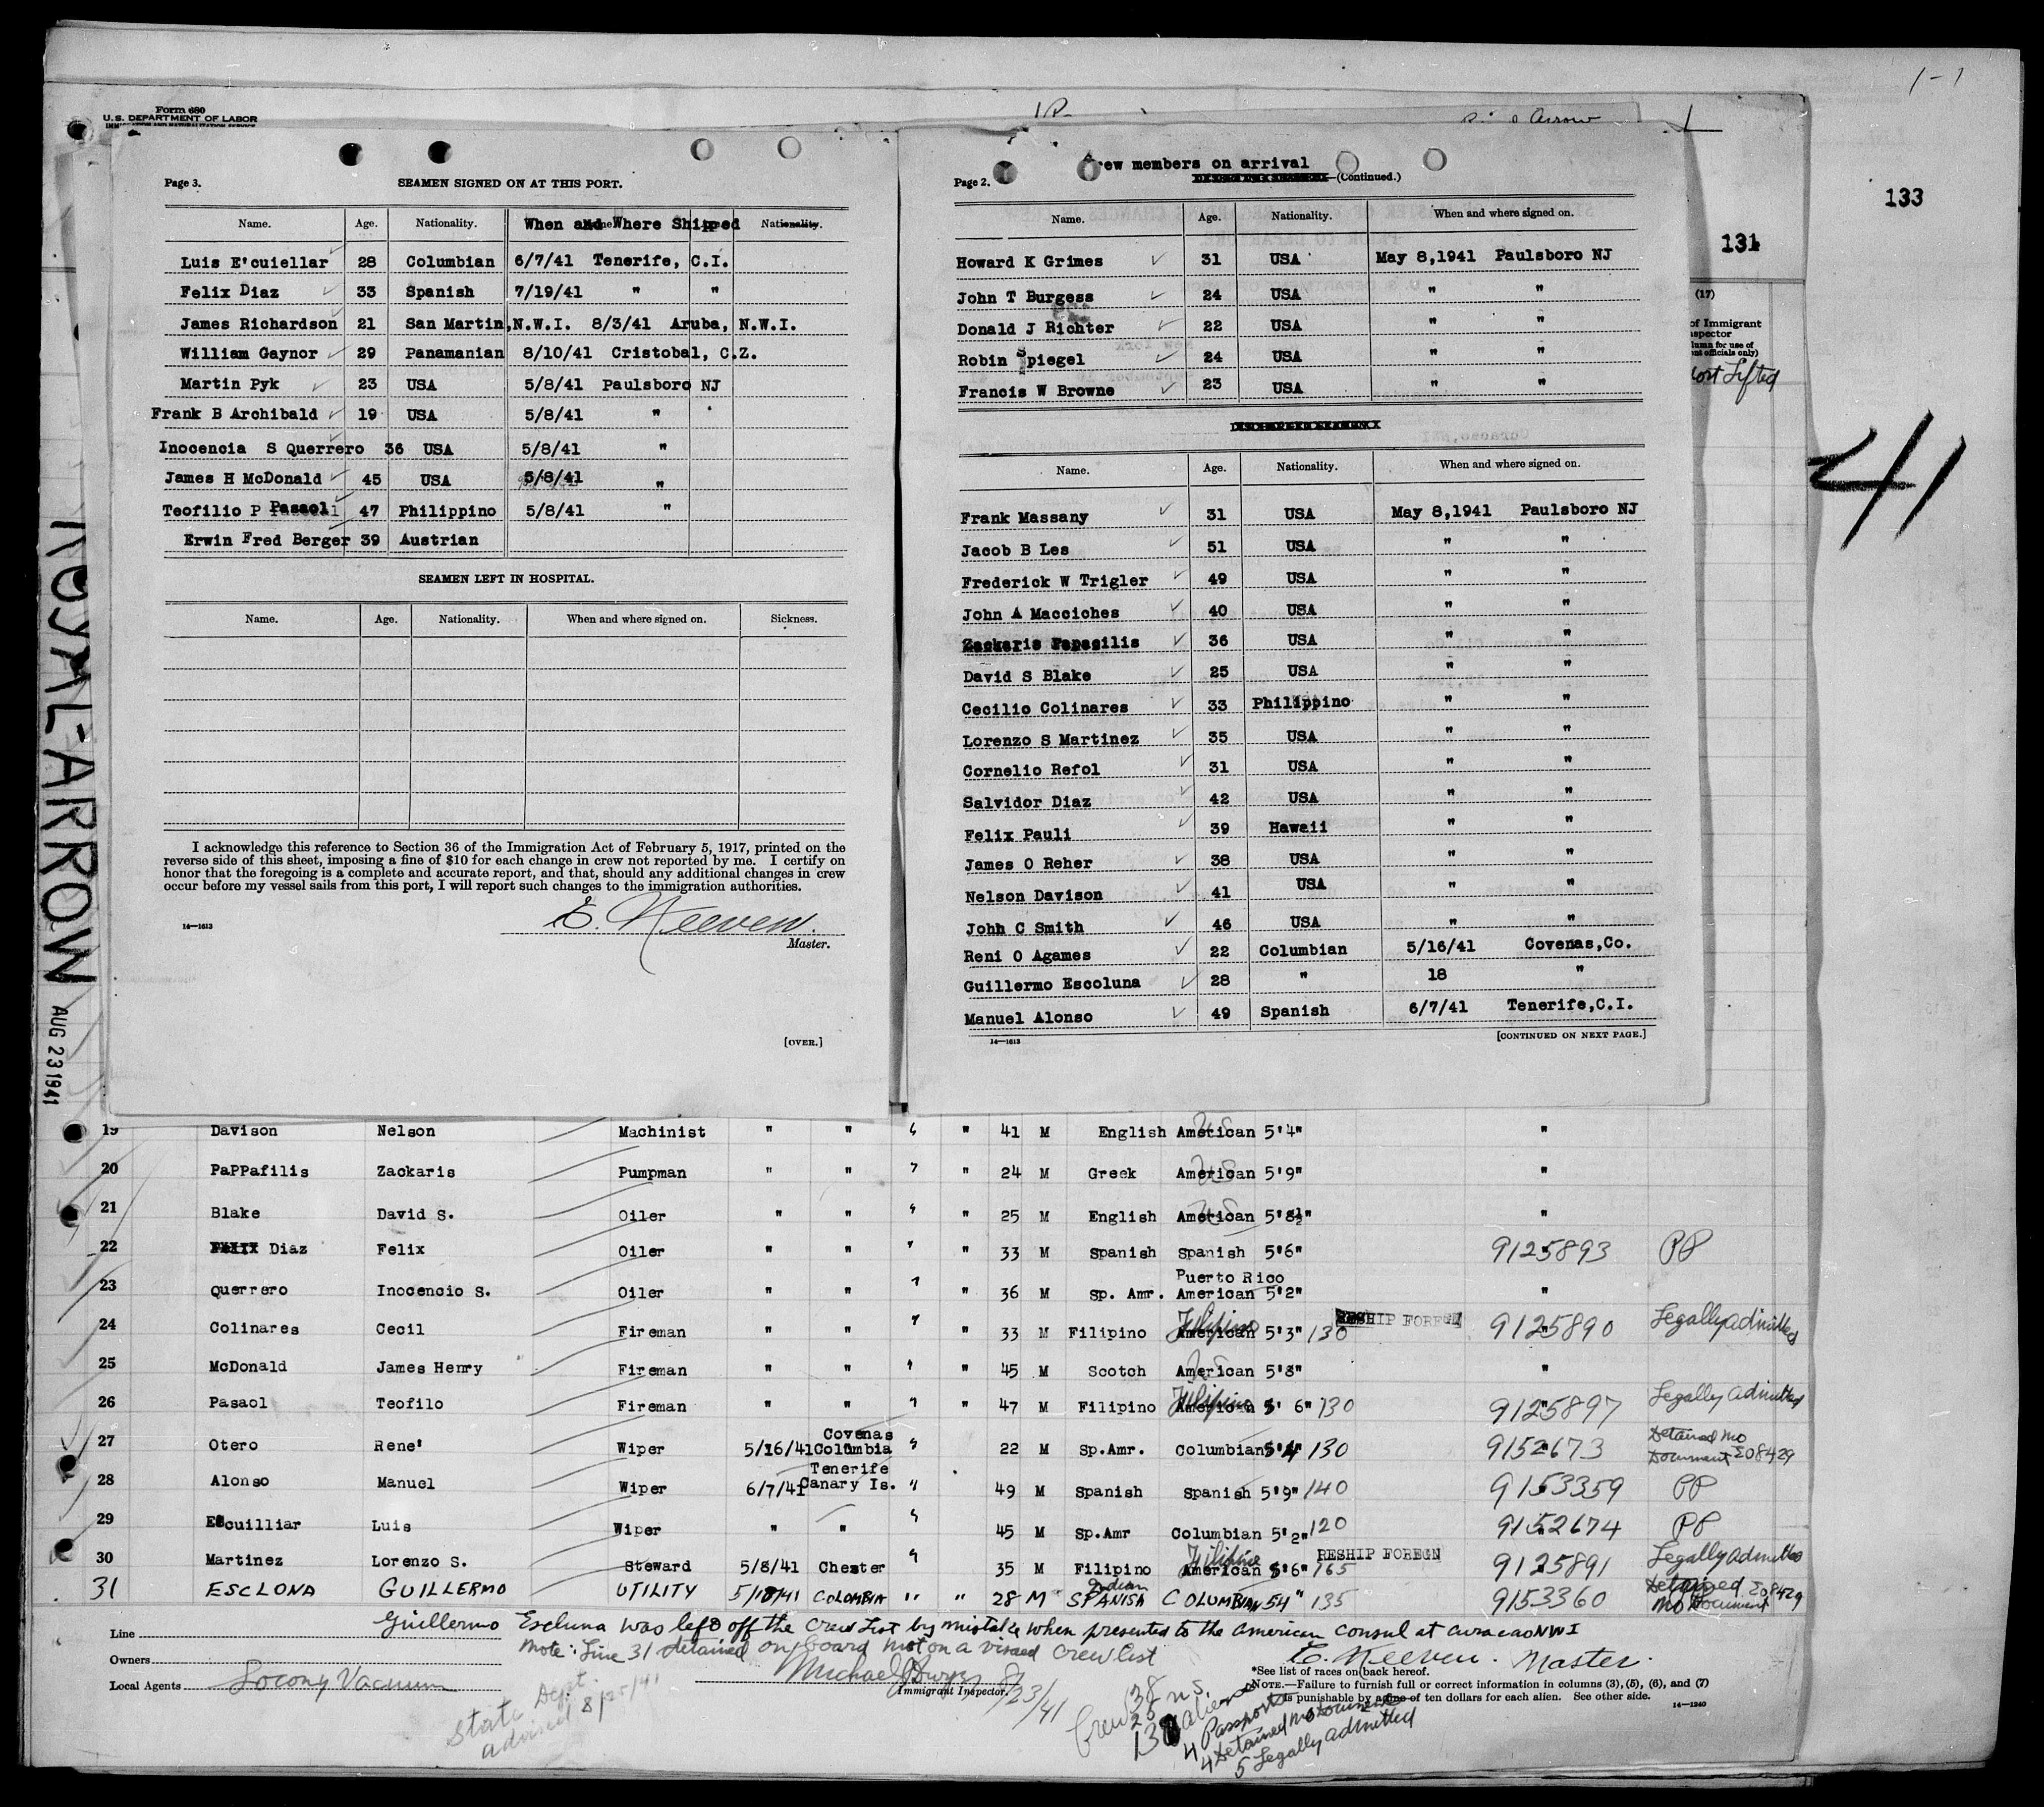 Form 680
U.S. DEPARTMENT OF LABOR
IMMIGRATION AND NATURALIZATION SERVICE
Arrow
1-1
133
131
41
(17)
of Immigrant
nspector
lumn for use of
ent officials only)
Lifted
ROYAL-ARROW
AUG 23 1941
Page 3.
SEAMEN SIGNED ON AT THIS PORT.
Name. Age. Nationality. When and Where Shipped Nationality.
Luis E'cuiellar 28 Columbian 6/7/41 Tenerife, C.I.
Felix Diaz 33 Spanish 7/19/41 " "
James Richardson 21 San Martin,N.W.I. 8/3/41 Aruba, N.W.I.
William Gaynor 29 Panamanian 8/10/41 Cristobal, C.Z.
Martin Pyk 23 USA 5/8/41 Paulsboro NJ
Frank B Archibald 19 USA 5/8/41 "
Inocencia S Querrero 36 USA 5/8/41 "
James H McDonald 45 USA 5/8/41 "
Teofilio P Pasaol 47 Philippino 5/8/41 "
Erwin Fred Berger 39 Austrian
SEAMEN LEFT IN HOSPITAL.
Name. Age. Nationality. When and where signed on. Sickness.
I acknowledge this reference to Section 36 of the Immigration Act of February 5, 1917, printed on the
reverse side of this sheet, imposing a fine of $10 for each change in crew not reported by me. I certify on
honor that the foregoing is a complete and accurate report, and that, should any additional changes in crew
occur before my vessel sails from this port, I will report such changes to the immigration authorities.
14—1613
E. Neeven.
Master.
[OVER.]
Crew members on arrival
Page 2. (Continued.)
Name. Age. Nationality. When and where signed on.
Howard K Grimes 31 USA May 8,1941 Paulsboro NJ
John T Burgess 24 USA " "
Donald J Richter 22 USA " "
Robin Spiegel 24 USA " "
Francis W Browne 23 USA " "
DISCHARGED SEAMEN
Name. Age. Nationality. When and where signed on.
Frank Massany 31 USA May 8,1941 Paulsboro NJ
Jacob B Les 51 USA " "
Frederick W Trigler 49 USA " "
John A Macciches 40 USA " "
Zackaris Papacilis 36 USA " "
David S Blake 25 USA " "
Cecilio Colinares 33 Philippino " "
Lorenzo S Martinez 35 USA " "
Cornelio Refol 31 USA " "
Salvidor Diaz 42 USA " "
Felix Pauli 39 Hawaii " "
James O Reher 38 USA " "
Nelson Davison 41 USA " "
John C Smith 46 USA " "
Reni O Agames 22 Columbian 5/16/41 Covenas,Co.
Guillermo Escoluna 28 " 18 "
Manuel Alonso 49 Spanish 6/7/41 Tenerife,C.I.
14—1613
[CONTINUED ON NEXT PAGE.]
19 Davison Nelson Machinist " " " " 41 M English American 5'4" "
20 PaPPafilis Zackaris Pumpman " " " " 24 M Greek American 5'9" "
21 Blake David S. Oiler " " " " 25 M English American 5'8½" "
22 Diaz Felix Oiler " " " " 33 M Spanish Spanish 5'6" 9125893 PP
23 Querrero Inocencio S. Oiler " " " " 36 M Sp. Amr. Puerto Rico American 5'2" "
24 Colinares Cecil Fireman " " " " 33 M Filipino Filipino American 5'3" 130 RESHIP FOREGN 9125890 Legally admitted
25 McDonald James Henry Fireman " " " " 45 M Scotch American 5'8" "
26 Pasaol Teofilo Fireman " " " " 47 M Filipino Filipino American 5' 6" 130 9125897 Legally admitted
27 Otero Rene' Wiper 5/16/41 Covenas Columbia " 22 M Sp.Amr. Columbian 5'4" 130 9152673 Detained no Document 208429
28 Alonso Manuel Wiper 6/7/41 Tenerife Canary Is. " 49 M Spanish Spanish 5'9" 140 9153359 PP
29 Escuilliar Luis Wiper " " " 45 M Sp.Amr Columbian 5'2" 120 9152674 PP
30 Martinez Lorenzo S. Steward 5/8/41 Chester " 35 M Filipino Filipino American 5'6" 165 RESHIP FOREGN 9125891 Legally admitted
31 ESCLONA GUILLERMO UTILITY 5/18/41 COLOMBIA " " 28 M Indian SPANISH COLUMBIAN 54" 135 9153360 Detained no Document 208429
Guillermo Escluna was left off the crew List by mistake when presented to the American Consul at Curacao NWI
Note: Line 31 detained on board not on a visaed crew list
E. Neeven. Master.
Line
Owners
Local Agents Socony Vacuum
Michael J Dwyer 8/23/41
Immigrant Inspector.
State Dept.
advised 8/25/41
*See list of races on back hereof.
NOTE.—Failure to furnish full or correct information in columns (3), (5), (6), and (7)
is punishable by a fine of ten dollars for each alien. See other side.
14—1240
Crew 38
25 U.S.
13 aliens
4 Passports
4 Detained no Document
5 Legally admitted